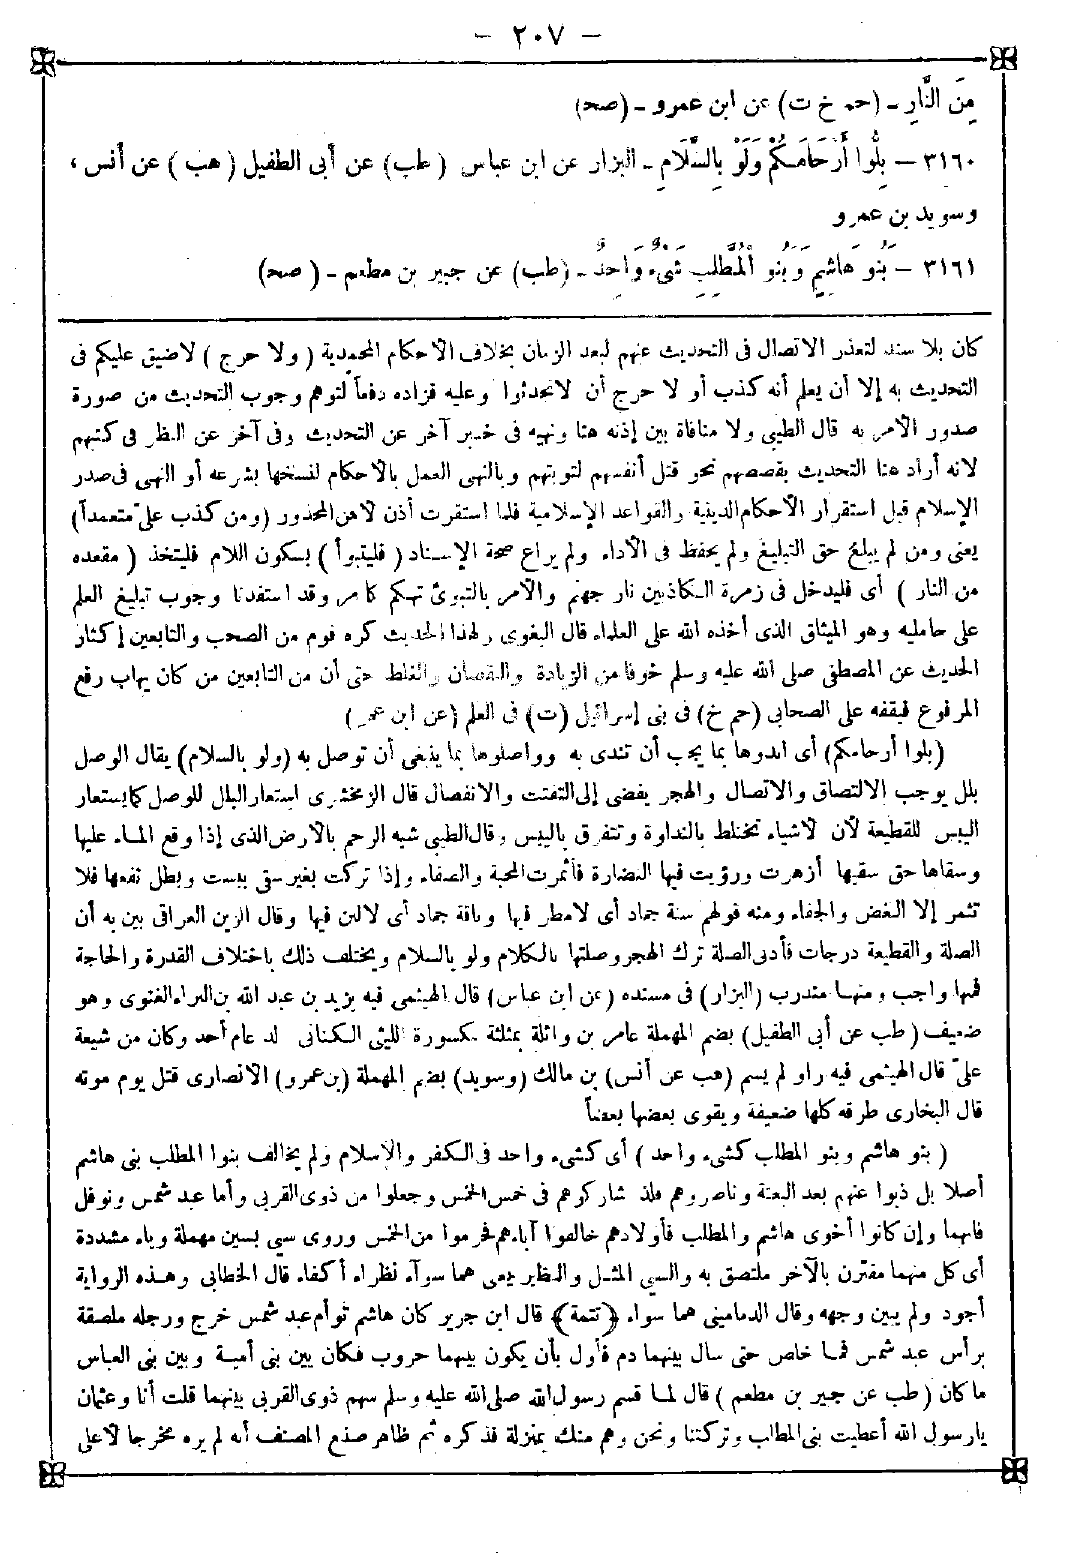 - ٢٠٧ -
مِنَ النَّارِ - (حم خ ت) عن ابن عمرو - (صح)
٣١٦٠ - بِلُّوا أَرْحَامَكُمْ وَلَوْ بِالسَّلَامِ - البزار عن ابن عباس (طب) عن أبى الطفيل (هب) عن أنس ،
وسويد بن عمرو
٣١٦١ - بَنُو هَاشِمٍ وَبَنُو الْمُطَّلِبِ شَىْءٌ وَاحِدٌ - (طب) عن جبير بن مطعم - (صح)
كان بلا سند لتعذر الاتصال فى التحديث عنهم لبعد الزمان بخلاف الأحكام المحمدية (ولا حرج) لاضيق عليكم فى
التحديث به إلا أن يعلم أنه كذب أو لا حرج أن لاتحدثوا وعليه فزاده دفعاً لتوهم وجوب التحديث من صورة
صدور الأمر به قال الطيبى ولا منافاة بين إذنه هنا ونهيه فى خبر آخر عن التحديث وفى آخر عن النظر فى كتبهم
لأنه أراد هنا التحديث بقصصهم نحو قتل أنفسهم لتوبتهم وبالنهى العمل بالأحكام لنسخها بشرعه أو النهى فى صدر
الإسلام قبل استقرار الأحكام الدينية والقواعد الإسلامية فلما استقرت أذن لأمن المحذور (ومن كذب علىّ متعمداً)
يعنى ومن لم يبلغ حق التبليغ ولم يحفظ فى الأداء ولم يراع صحة الإسناد (فليتبوأ) بسكون اللام فليتخذ (مقعده
من النار) أى فليدخل فى زمرة الكاذبين نار جهنم والأمر بالتبوئ تهكم كما مر وقد استفدنا وجوب تبليغ العلم
على حامليه وهو الميثاق الذى أخذه الله على العلماء قال البغوى ولهذا الحديث كره قوم من الصحب والتابعين إكثار
الحديث عن المصطفى صلى الله عليه وسلم خوفا من الزيادة والنقصان والغلط حتى أن من التابعين من كان يهاب رفع
المرفوع فيقفه على الصحابى (حم خ) فى بنى إسرائيل (ت) فى العلم (عن ابن عمر)
(بلوا أرحامكم) أى اندوها بما يجب أن تندى به وواصلوها بما ينبغى أن توصل به (ولو بالسلام) يقال الوصل
بلل يوجب الالتصاق والاتصال والهجر يفضى إلى التفتت والانفصال قال الزمخشرى استعار البلل للوصل كما يستعار
اليبس للقطيعة لأن الأشياء تختلط بالنداوة وتتفرق باليبس وقال الطيبى شبه الرحم بالأرض الذى إذا وقع الماء عليها
وسقاها حق سقيها أزهرت ورؤيت فيها النضارة فأثمرت المحبة والصفاء وإذا تركت بغير سقى يبست وبطل نفعها فلا
تثمر إلا البغض والجفاء ومنه قولهم سنة جماد أى لامطر فيها وناقة جماد أى لالبن فيها وقال الزين العراقى بين به أن
الصلة والقطيعة درجات فأدنى الصلة ترك الهجر وصلتها بالكلام ولو بالسلام ويختلف ذلك باختلاف القدرة والحاجة
فمنها واجب ومنها مندوب (البزار) فى مسنده (عن ابن عباس) قال الهيثمى فيه يزيد بن عبد الله بن البراء الغنوى وهو
ضعيف (طب عن أبى الطفيل) بضم المهملة عامر بن واثلة بمثلثة مكسورة الليثى الكنانى ولد عام أحد وكان من شيعة
علىّ قال الهيثمى فيه راو لم يسم (هب عن أنس) بن مالك (وسويد) بضم المهملة (بن عمرو) الأنصارى قتل يوم موته
قال البخارى طرقه كلها ضعيفة ويقوى بعضها بعضاً
(بنو هاشم وبنو المطلب كشىء واحد) أى كشىء واحد فى الكفر والإسلام ولم يخالف بنوا المطلب بنى هاشم
أصلا بل ذبوا عنهم بعد البعثة وناصروهم فلذ شاركوهم فى خمس الخمس وجعلوا من ذوى القربى وأما عبد شمس ونوفل
فانهما وإن كانوا أخوى هاشم والمطلب فأولادهم خالفوا آباءهم فحرموا من الخمس وروى سى بسين مهملة وياء مشددة
أى كل منهما مقترن بالآخر ملتصق به والسى المثل والنظير يعنى هما سوآء نظراء أكفاء قال الخطابى وهذه الرواية
أجود ولم يبين وجهه وقال الدمامينى هما سواء ﴿تتمة﴾ قال ابن جرير كان هاشم توأم عبد شمس خرج ورجله ملصقة
برأس عبد شمس فما خلص حتى سال بينهما دم فأول بأن يكون بينهما حروب فكان بين بنى أمية وبين بنى العباس
ما كان (طب عن جبير بن مطعم) قال لما قسم رسول الله صلى الله عليه وسلم سهم ذوى القربى بينهما قلت أنا وعثمان
يارسول الله أعطيت بنى المطلب وتركتنا ونحن وهم منك بمنزلة فذكره ثم ظاهر صنع المصنف أنه لم يره مخرجا لأعلى